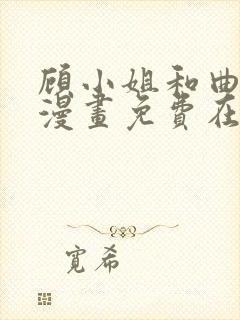 顾小姐和曲
漫畫免費在
寬希